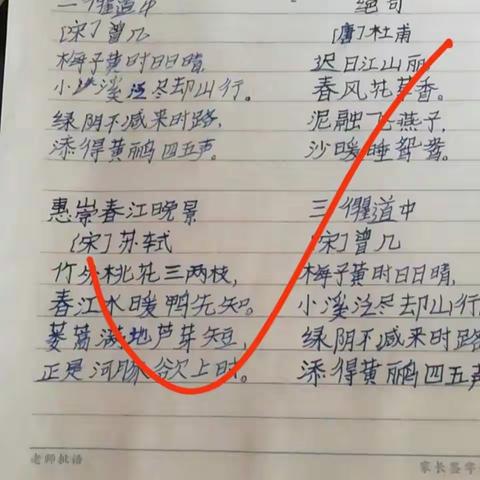 三衢道中
[宋]曾几
梅子黄时日日晴,
小溪泛尽却山行。
绿阴不减来时路,
添得黄鹂四五声。
绝句
[唐]杜甫
迟日江山丽
春风花草香。
泥融飞燕子,
沙暖睡鸳鸯。
惠崇春江晚景
[宋]苏轼
竹外桃花三两枝,
春江水暖鸭先知。
蒌蒿满地芦芽短,
正是河豚欲上时。
三衢道中
[宋]曾几
梅子黄时日日晴,
小溪泛尽却山行
绿阴不减来时路
添得黄鹂四五声
老师批语
家长签字